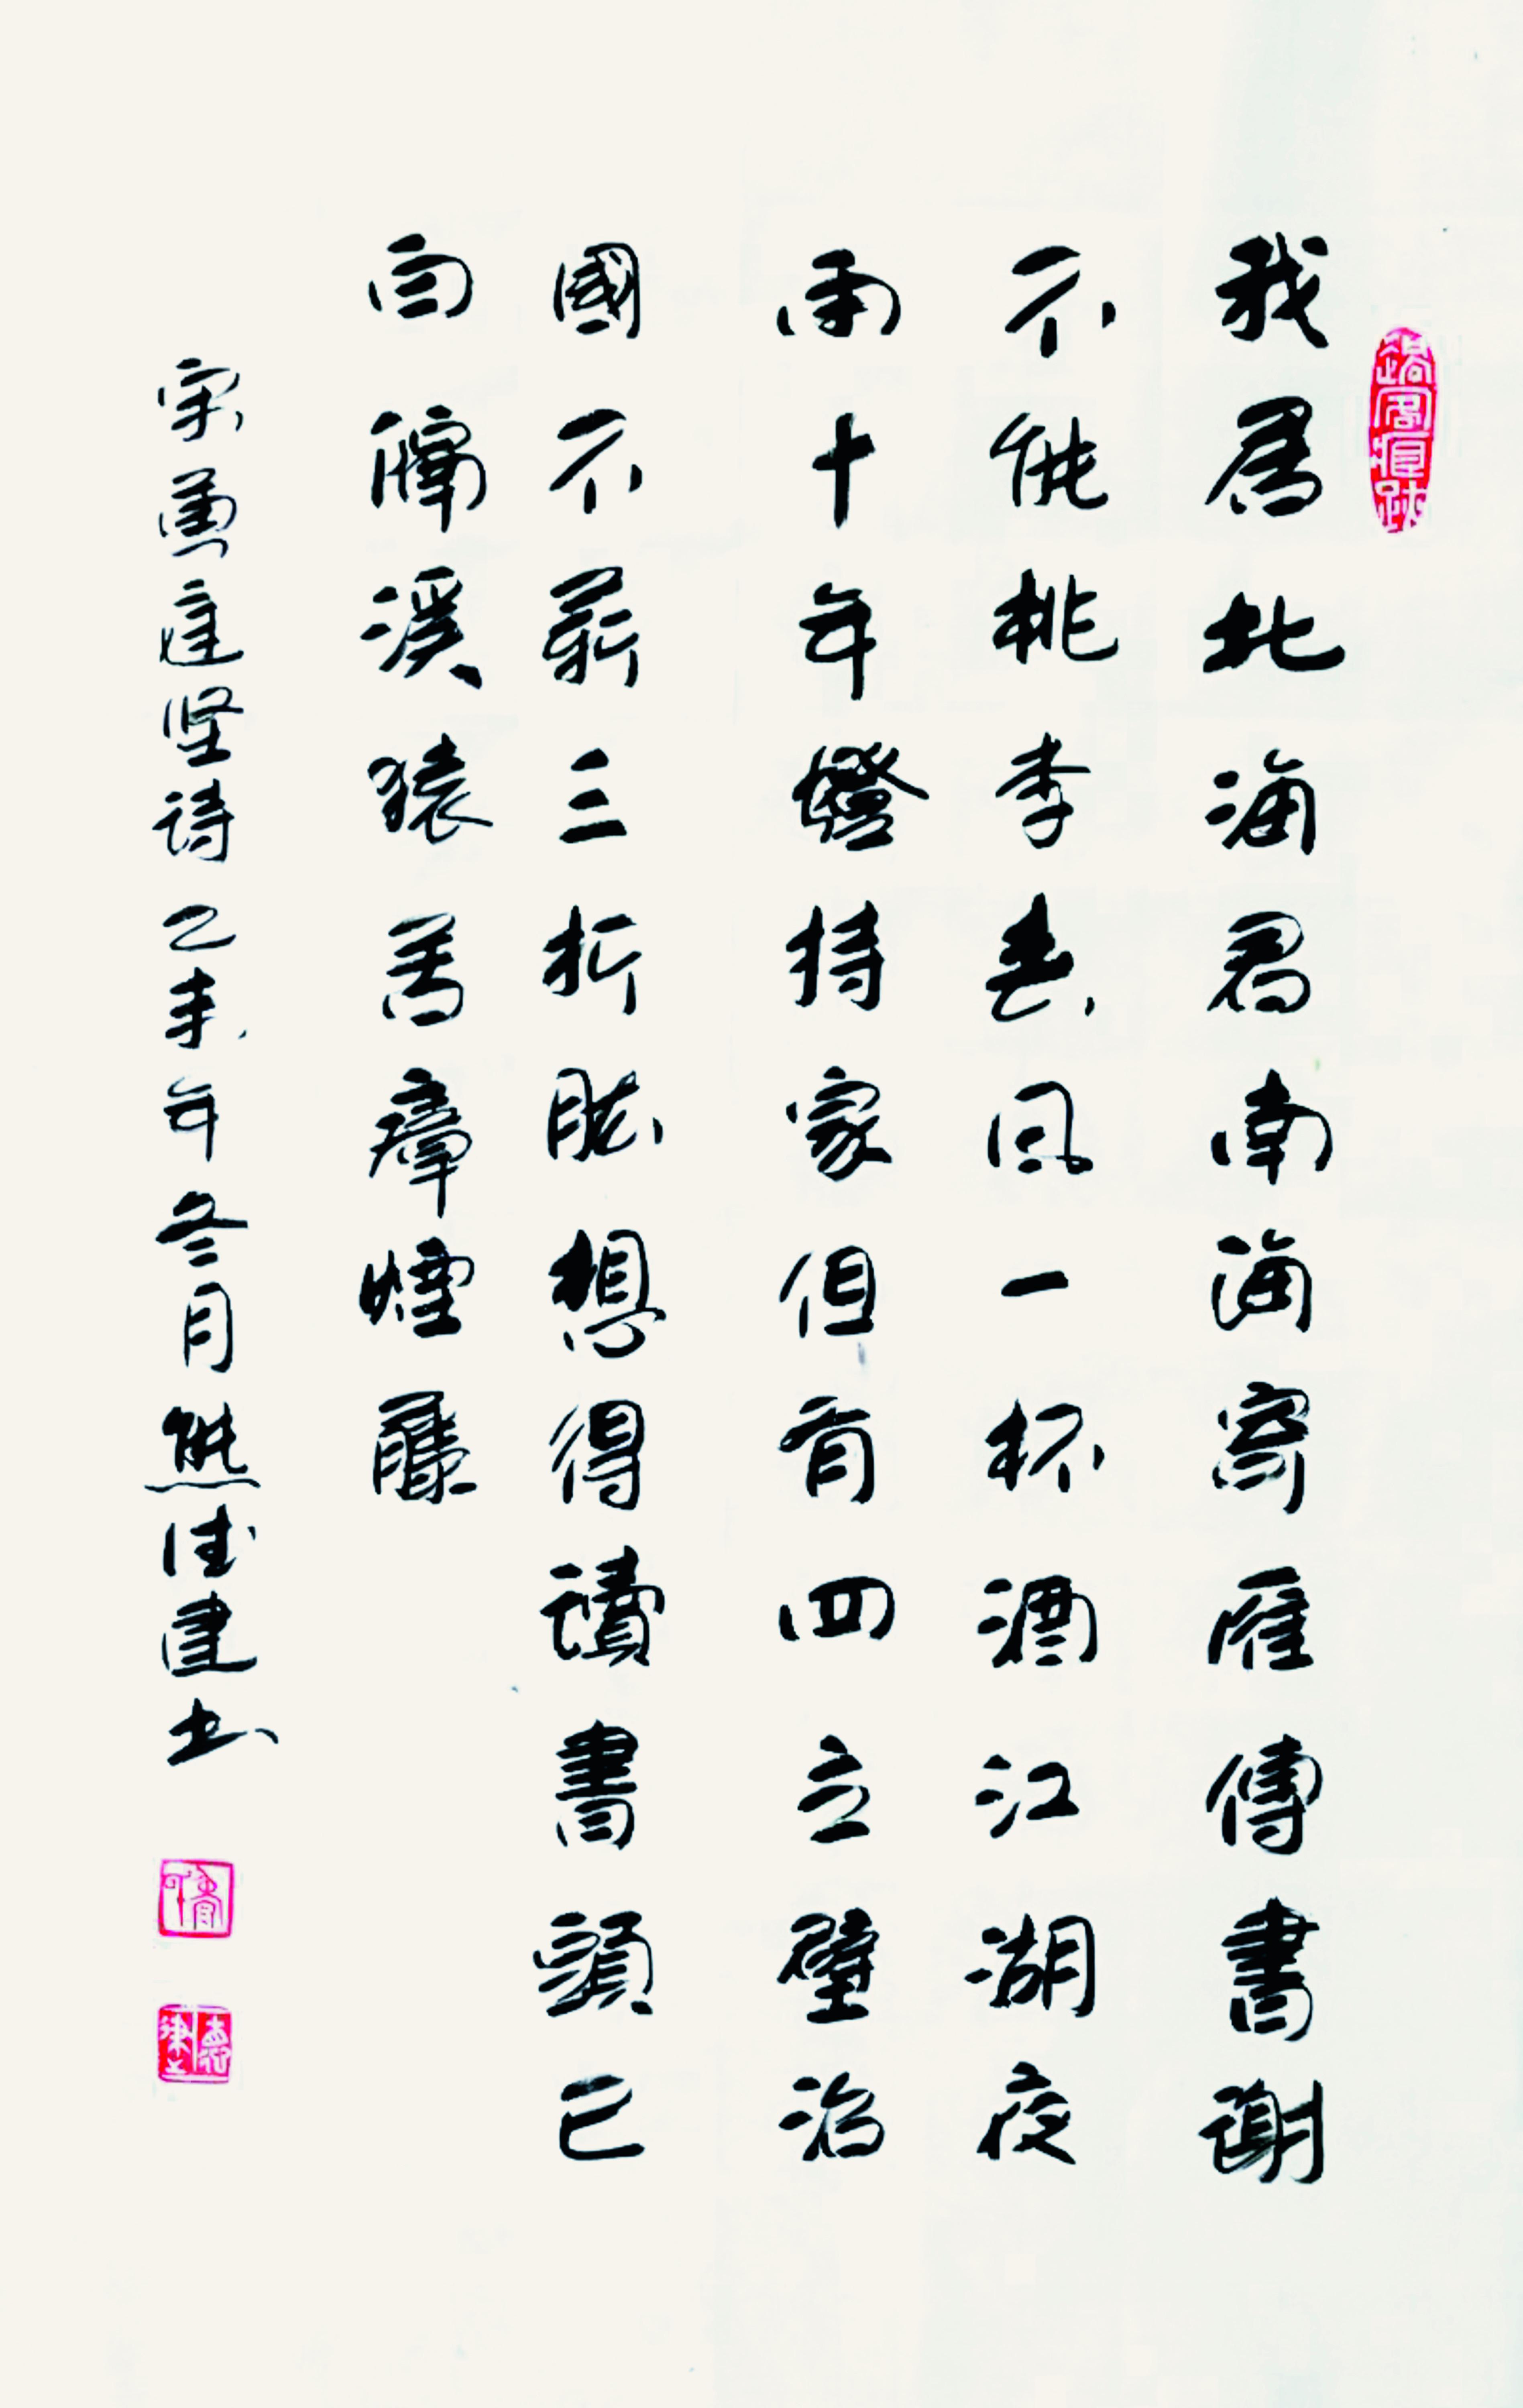 我居北海君南海寄雁傳書謝
不能桃李春風一杯酒江湖夜
雨十年燈持家但有四立壁治
國不蘄三折肱想得讀書頭已
白隔溪猿哭瘴煙藤
宋黃庭坚诗乙未年冬月熊德建书